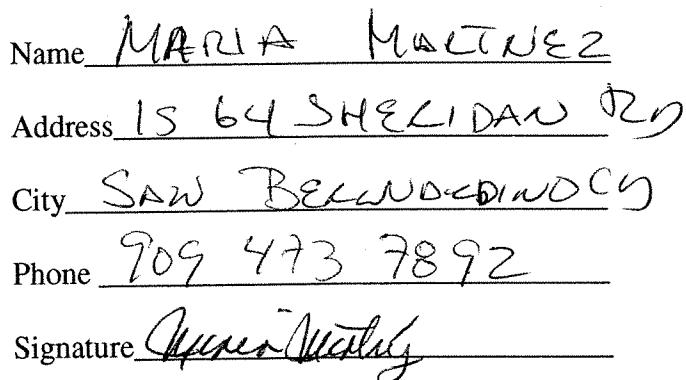 Name MARIA MARTNEZ
Address 1564 SHERIDAN RD
City SAN BERNARDINO CA
Phone 909 473 7892
Signature Maria Martnez